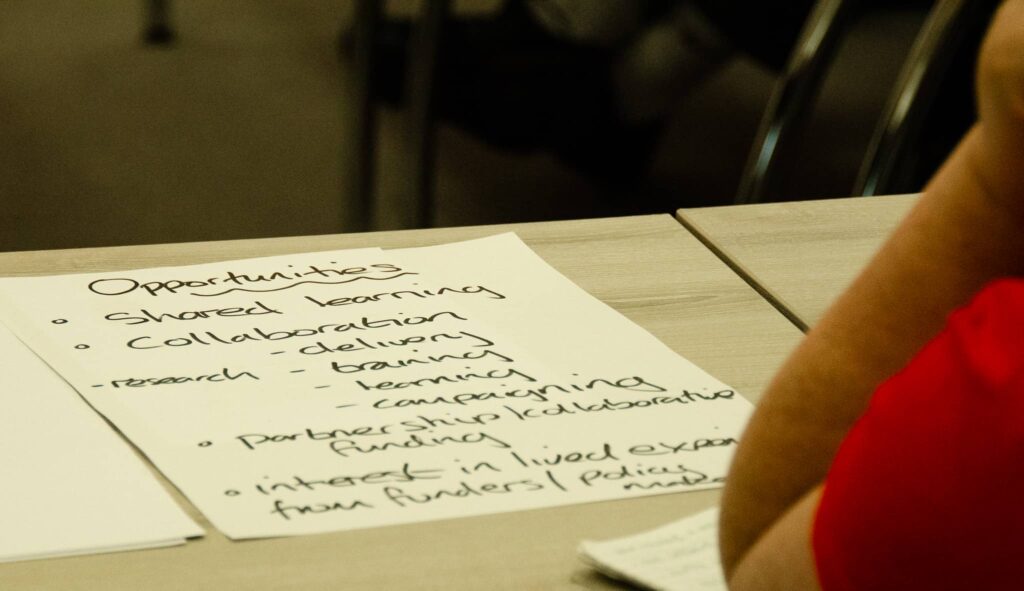 Opportunities
• Shared learning
• Collaboration
- delivery
- research - training
- learning
- campaigning
• partnership/collaborative
funding
• interest in lived
from funders/policy